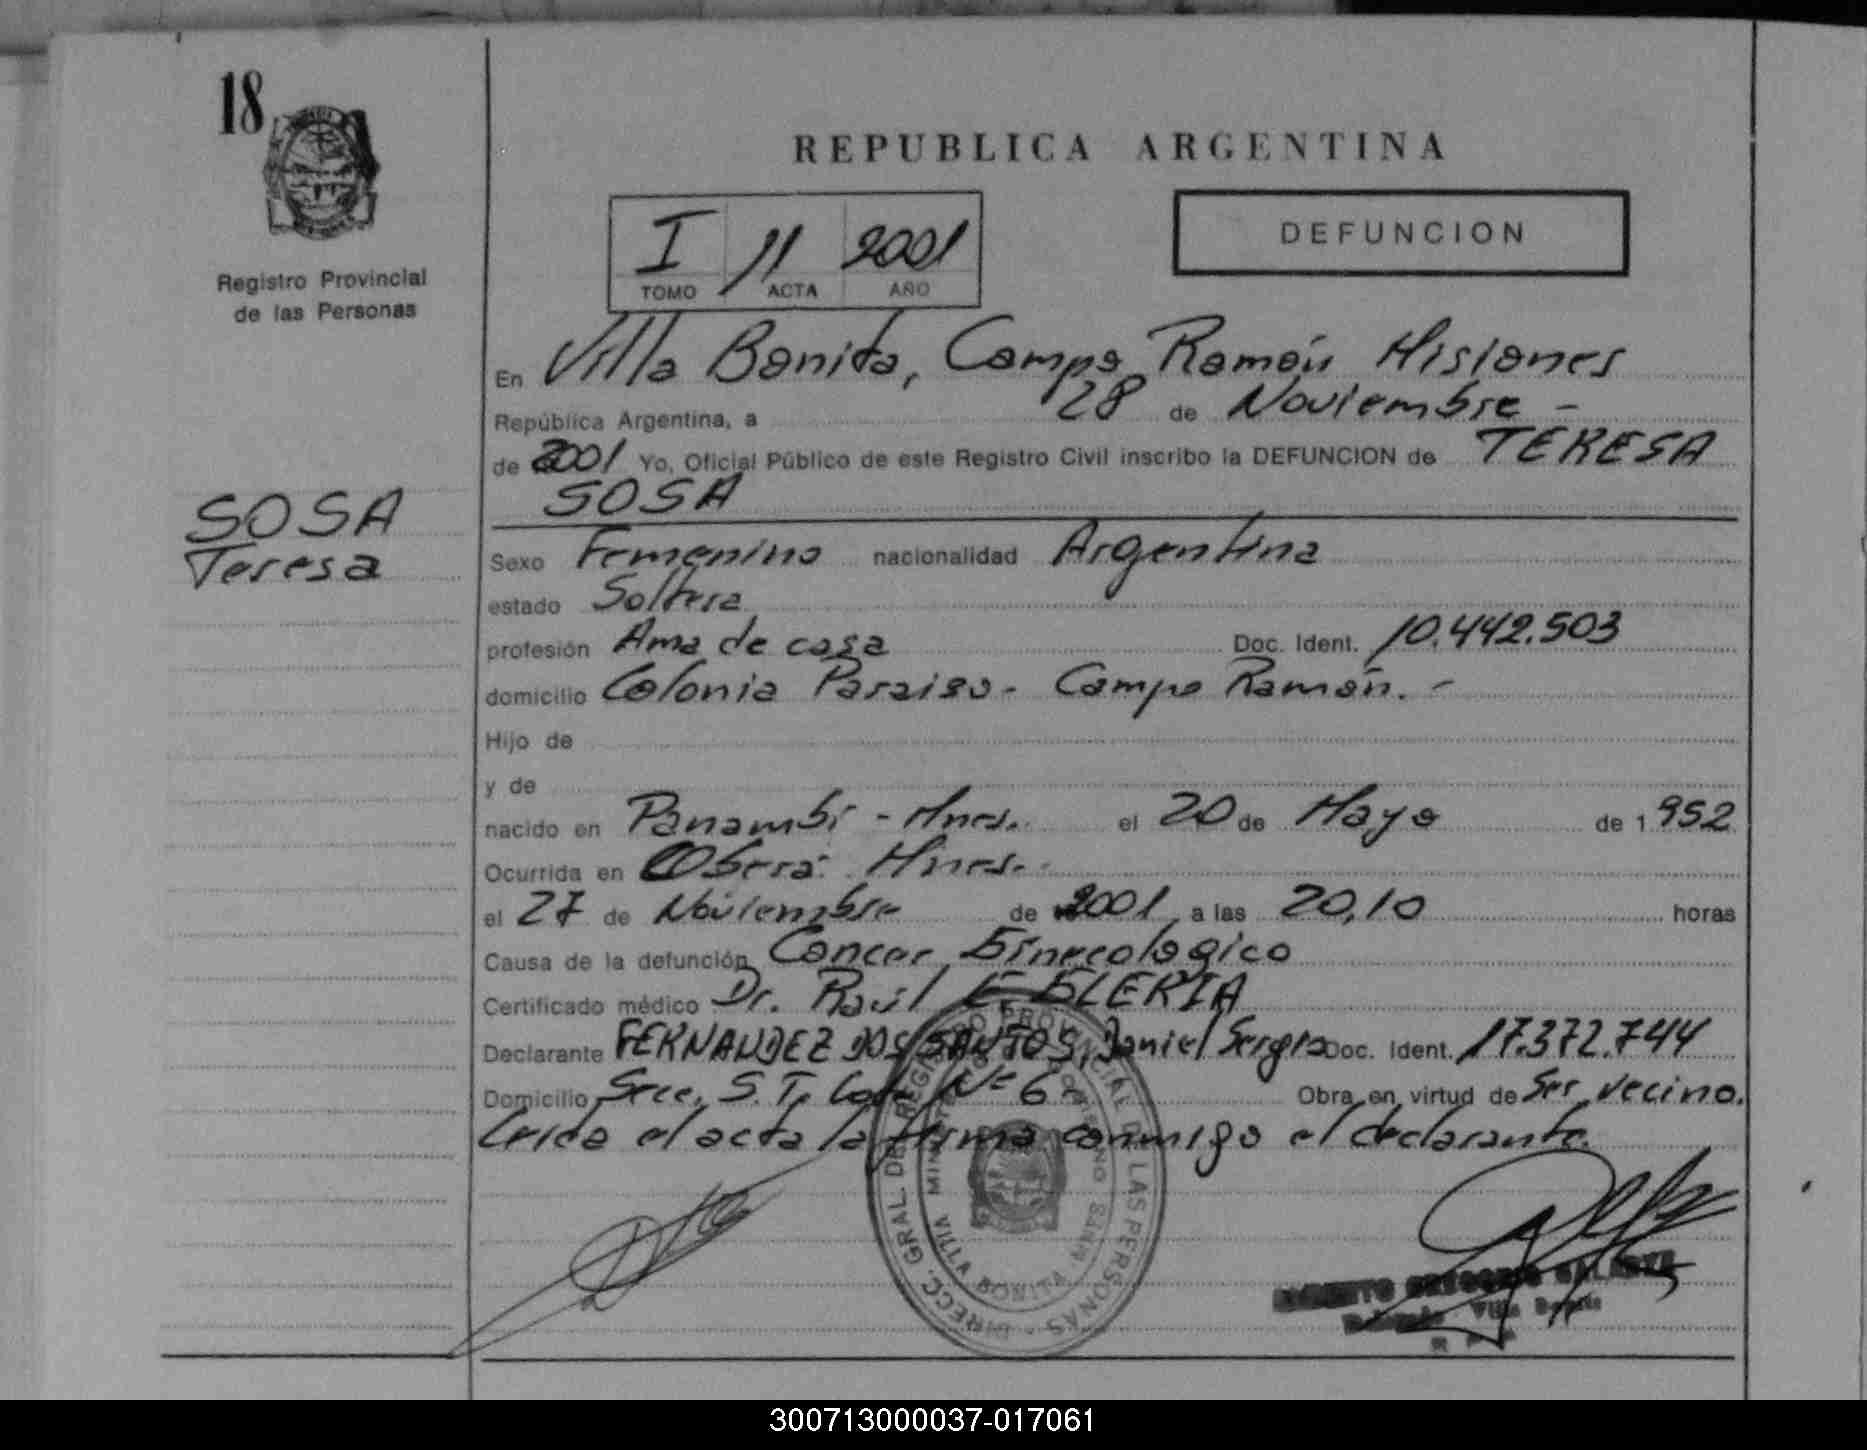 18
Registro Provincial
de las Personas
REPUBLICA ARGENTINA
I 11 2001
TOMO ACTA AÑO
DEFUNCION
En Villa Bonita, Campo Ramón Misiones
República Argentina, a 28 de Noviembre -
de 2001 Yo, Oficial Público de este Registro Civil inscribo la DEFUNCION de TERESA
SOSA
SOSA
Teresa
Sexo Femenino nacionalidad Argentina
estado Soltera
profesión Ama de casa Doc. Ident. 10.442.503
domicilio Colonia Paraiso - Campo Ramón. -
Hijo de
y de
nacido en Panambí - Mnes. el 20 de Mayo de 1 952
Ocurrida en Oberá: Mnes. -
el 27 de Noviembre de 2001 a las 20,10 horas
Causa de la defunción Cancer Ginecologico
Certificado médico Dr. Raúl E
Declarante FERNANDEZ DOS SANTOS, Daniel Sergio Doc. Ident. 17.372.744
Domicilio Secc. S. T, Lote Nº 6 - Obra en virtud de Ser vecino.
Leida el acta la firma conmigo el declarante.
DIRECC. GRAL DE REGISTRO PROVINCIAL DE LAS PERSONAS
VILLA BONITA
Villa Bonita
300713000037-017061